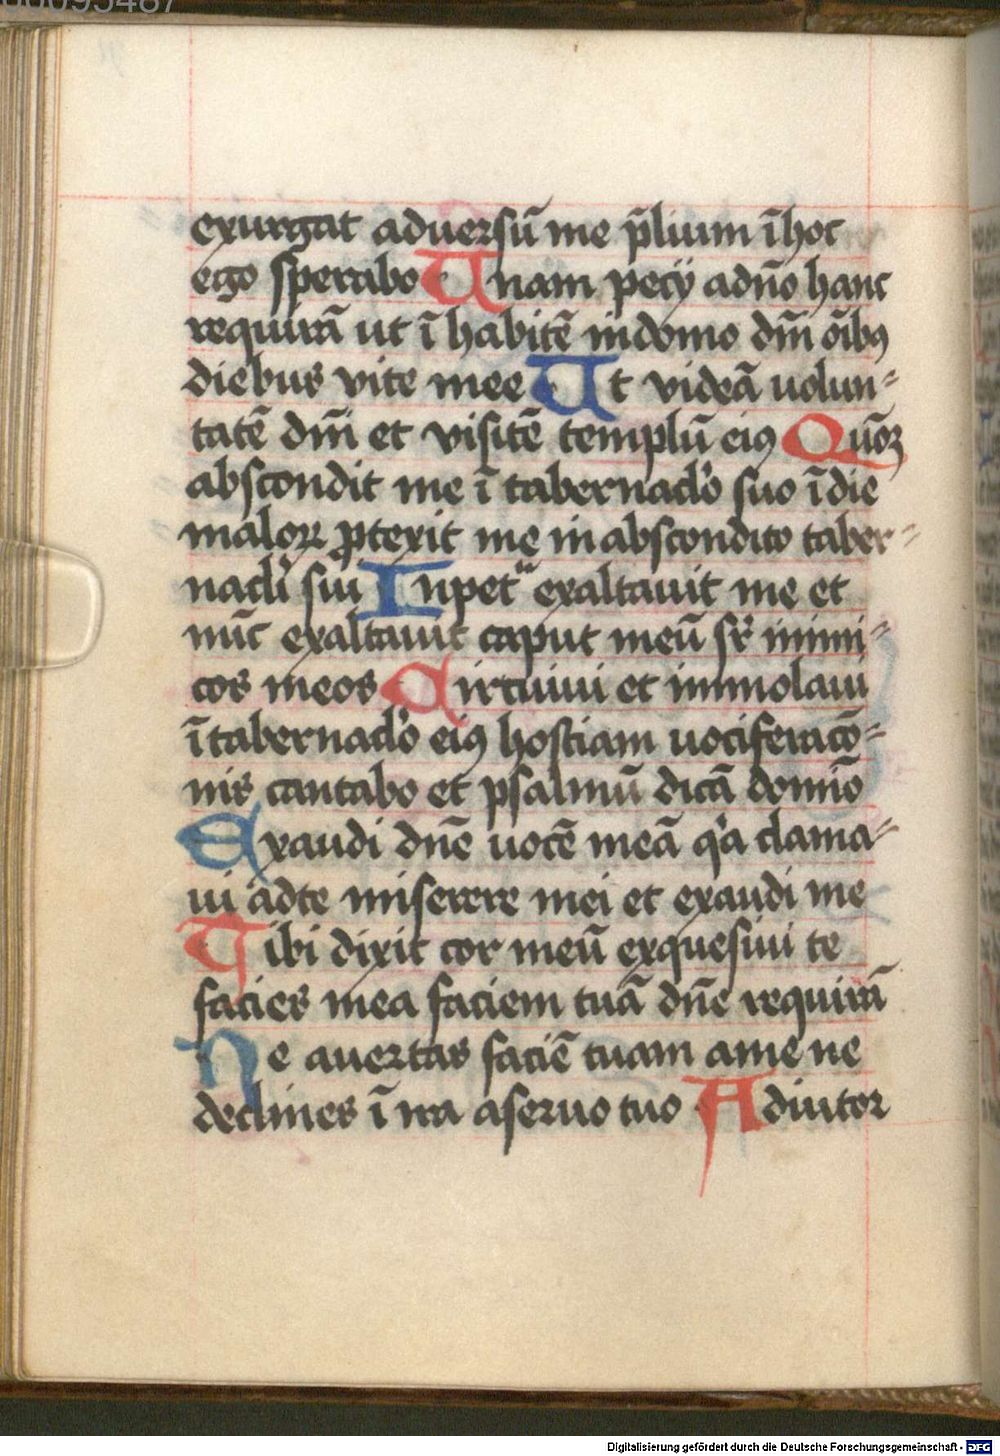 exurgat aduersū me p̄lium ī hoc
ego sperabo Unam pecÿ adn̄o hanc
requirā ut ī habitē in domo dn̄i oībꝯ
diebus vite mee Ut videā uolun⸗
tatē dn̄i et visitē templū eiꝯ Quōꝝ
abscondit me ī tabernac̄lo suo ī die
maloꝝ ꝓtexit me in abscondito taber⸗
nacl̄i sui In petᵃ exaltauit me et
nūc exaltauit caput meū sr̄ inimi⸗
cos meos Circuiui et immolaui
ī tabernac̄lo eiꝯ hostiam uociferacō⸗
nis cantabo et psalmū dicā domīo
Exaudi dn̄e uocē meā qͥa clama⸗
ui ad te miserere mei et exaudi me
Tibi dixit cor meū exquesiui te
facies mea faciem tuā dn̄e requirā
Ne auertas faciē tuam a me ne
declines ī ira a seruo tuo Adiutor
Digitalisierung gefördert durch die Deutsche Forschungsgemeinschaft - DFG